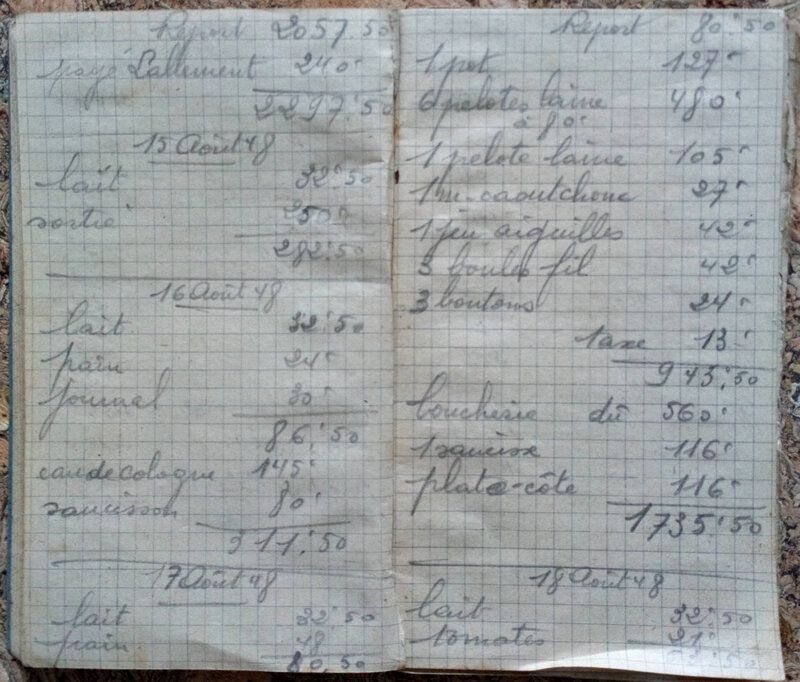 Report 2057.50
payé Lallement 240
2297.50
15 Août 48
lait 32.50
sortie 250
282.50
16 Août 48
lait 32.50
pain 24
journal 30
86.50
eau de cologne 145
saucisson 80
311.50
17 Août 48
lait 32.50
pain 48
80.50
Report 80.50
1 pot 127
6 pelotes laine 480
à 80
1 pelote laine 105
1 m. caoutchouc 27
1 jeu aiguilles 42
3 boules fil 42
3 boutons 24
taxe 13
943.50
boucherie dû 560
1 saucisse 116
plate-côte 116
1735.50
18 Août 48
lait 32.50
tomates 21